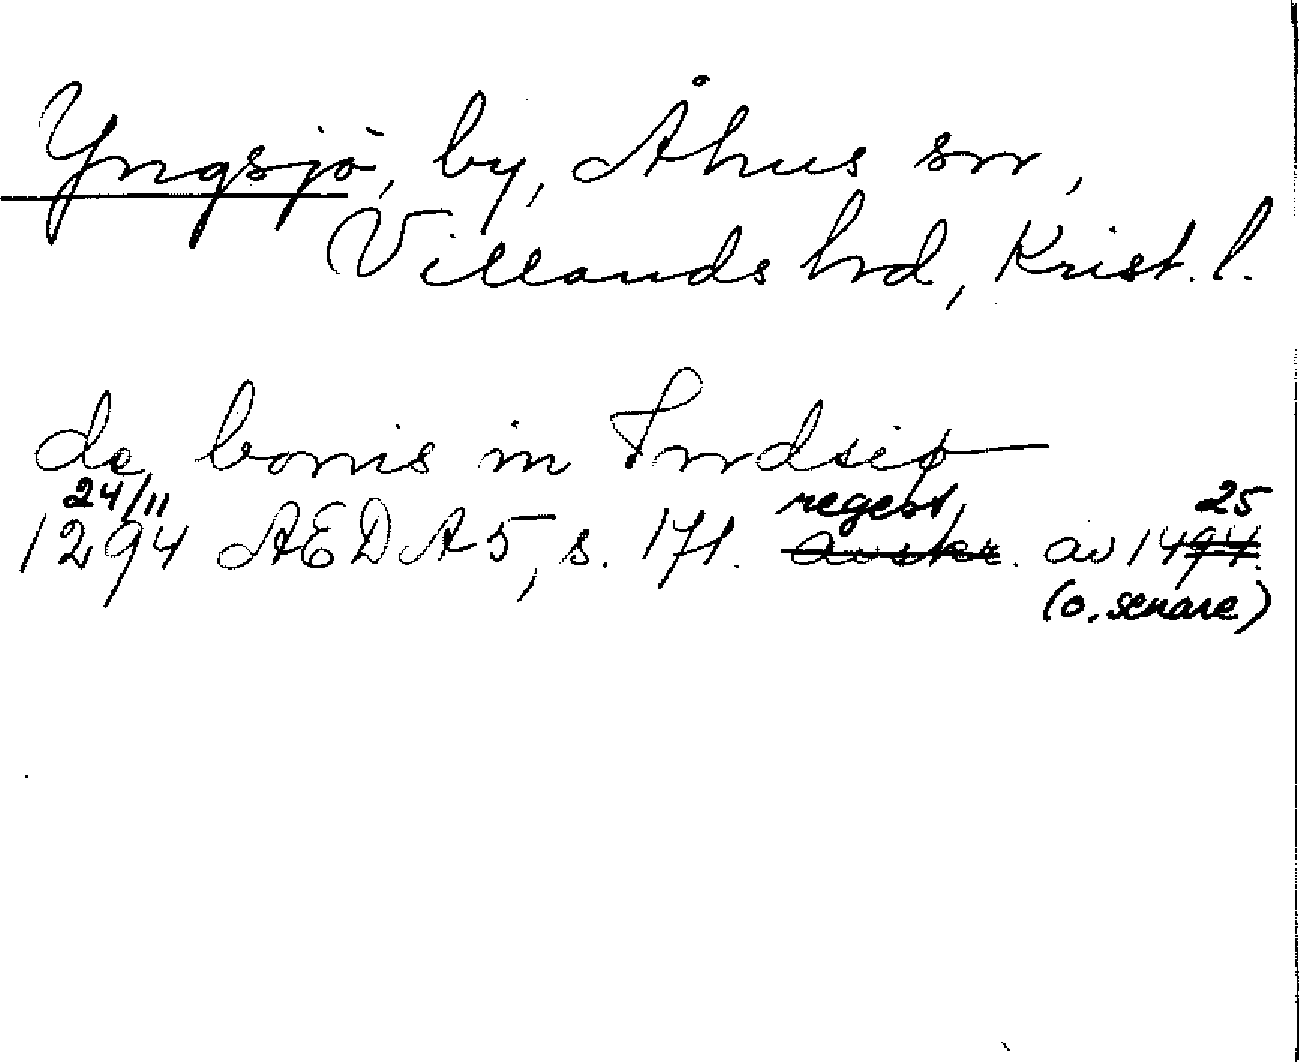 Yngsjö, by, Åhus sn,
Villands hrd, Krist. l.
de bonis in Indsiø
24/11 regest, 25
1294 AEDA 5, s. 171. avskr. av 1494.
(o. senare)